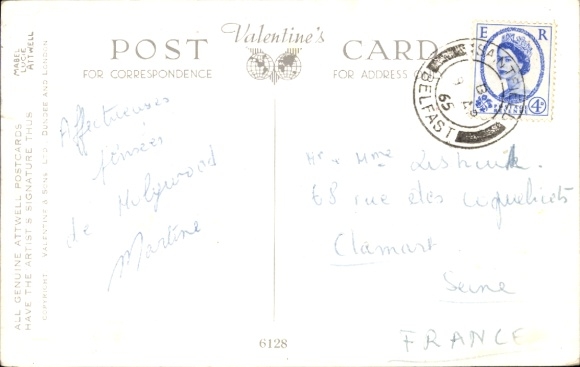 MABEL
LUCIE
ATTWELL
ALL GENUINE ATTWELL POSTCARDS
HAVE THE ARTIST'S SIGNATURE THUS
COPYRIGHT VALENTINE & SONS LTD DUNDEE AND LONDON
Valentine's
POST CARD
FOR CORRESPONDENCE
FOR ADDRESS
E R
4D
BELFAST
65
Affectueuses
pensées
de Holywood
Martine
Mr & Mme
68 rue des
Clamart
Seine
FRANCE
6128